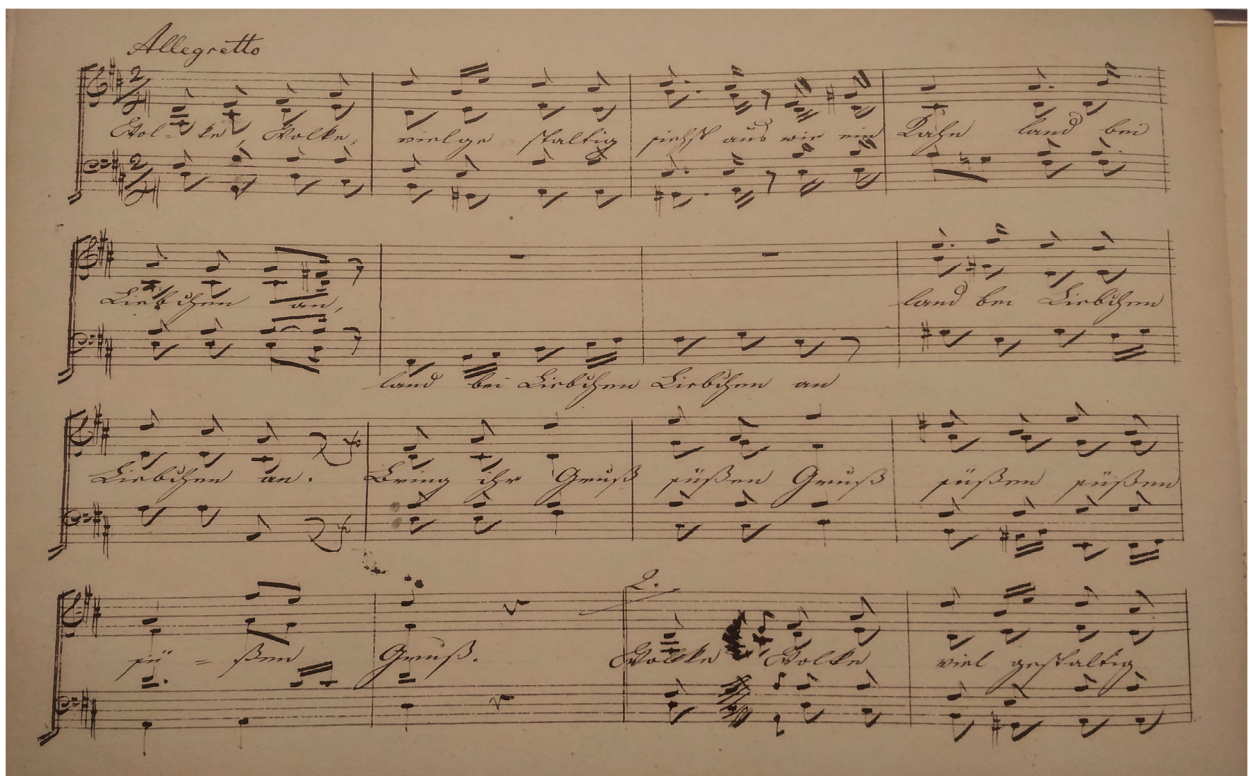 Allegretto
Wol- ke Wolke, vielge staltig siehst aus wie ein Kahn land bei
Liebchen an, land bei Liebchen
land bei Liebchen Liebchen an
Liebchen an. Bring ihr Gruß süßen Gruß süßen süßen
2.
sü = ßen Gruß. Wolke Wolke viel gestaltig